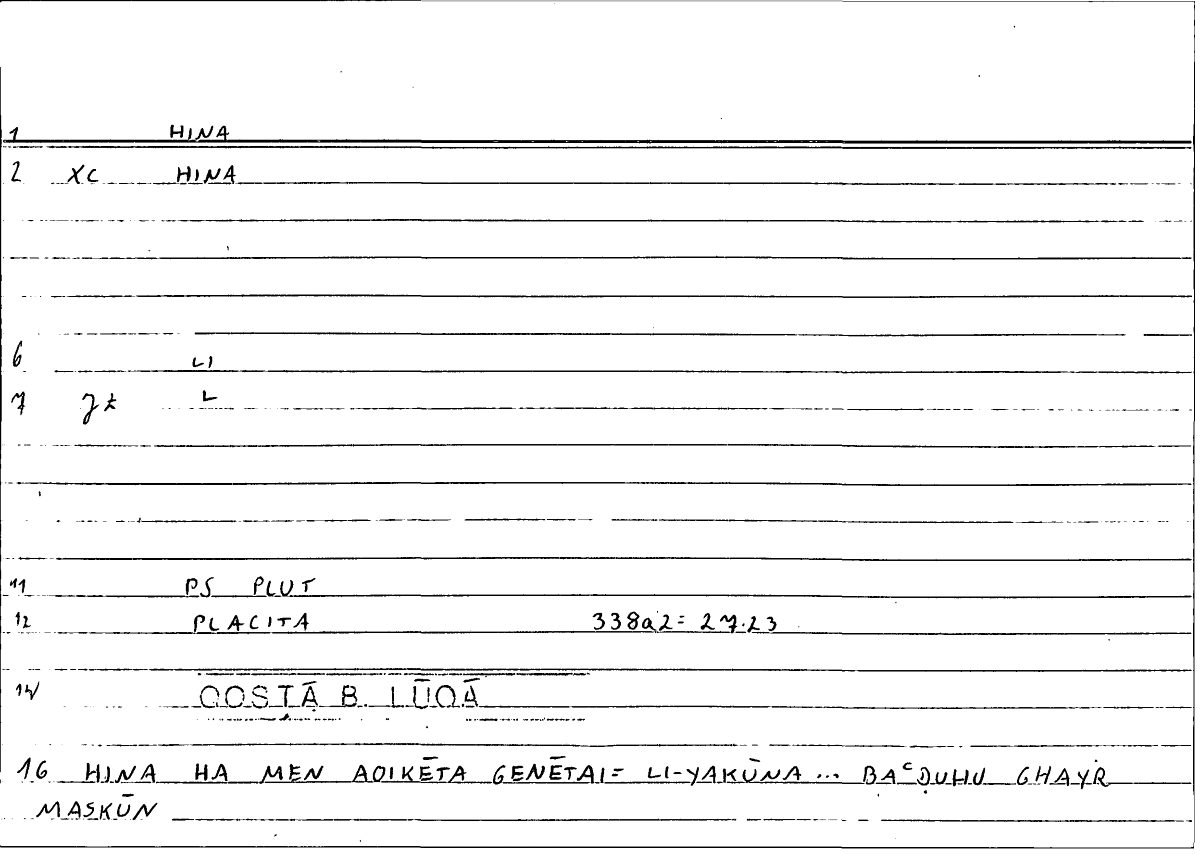 1 HINA
2 XC HINA
6 LI
7 L
11 PS PLUT
12 PLACITA 338a2= 27.23
14 QOSṬĀ B. LŪQĀ
16 HINA HA MEN AOIKĒTA GENĒTAI= LI-YAKŪNA... BAᶜḌUHU GHAYR
MASKŪN